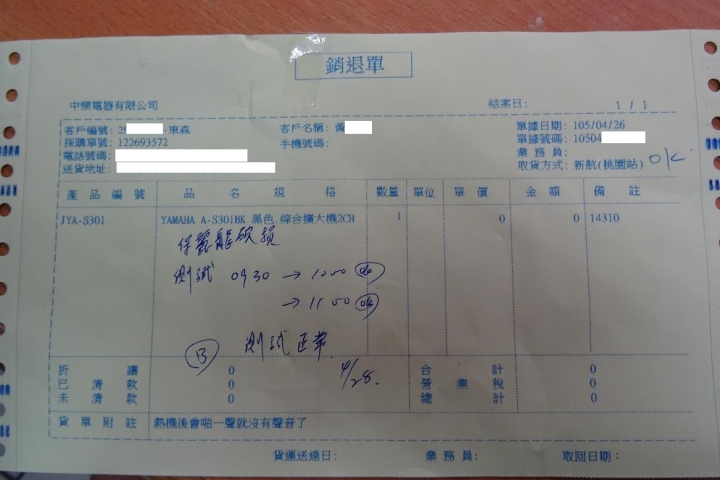 銷退單
中樂電器有限公司
結案日:
1 / 1
客戶編號: 29 -東森
客戶名稱: 黃
單據日期: 105/04/26
採購單號: 122693572
手機號碼:
單據號碼: 10504
電話號碼:
業 務 員:
送貨地址:
取貨方式: 新航(桃園站)
OK
產 品 編 號 品 名 規 格 數量 單位 單 價 金 額 備 註
JYA-S301 YAMAHA A-S301BK 黑色 綜合擴大機2CH 1 0 0 14310
保麗龍破損
測試 0930 → 1000 OK
→ 1100 OK
B 測試正常
4/28.
折 讓 0 合 計 0
已 清 款 0 營 業 稅 0
未 清 款 0 總 計 0
貨 單 附 註 熱機後會啪一聲就沒有聲音了
貨運送達日: 業 務 員: 取回日期: